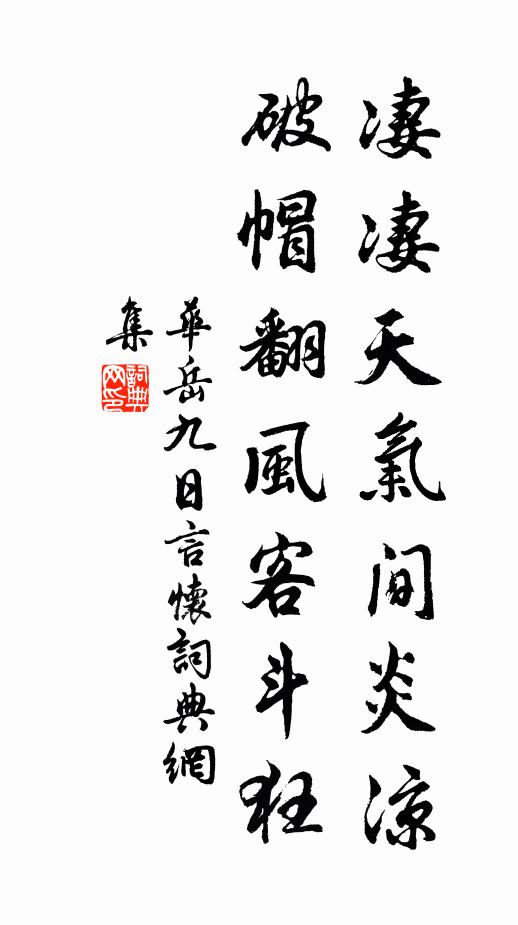 凄凄天氣间炎凉
破帽翻風客斗狂
華岳九日言懷詞典網
集
詞典
网印